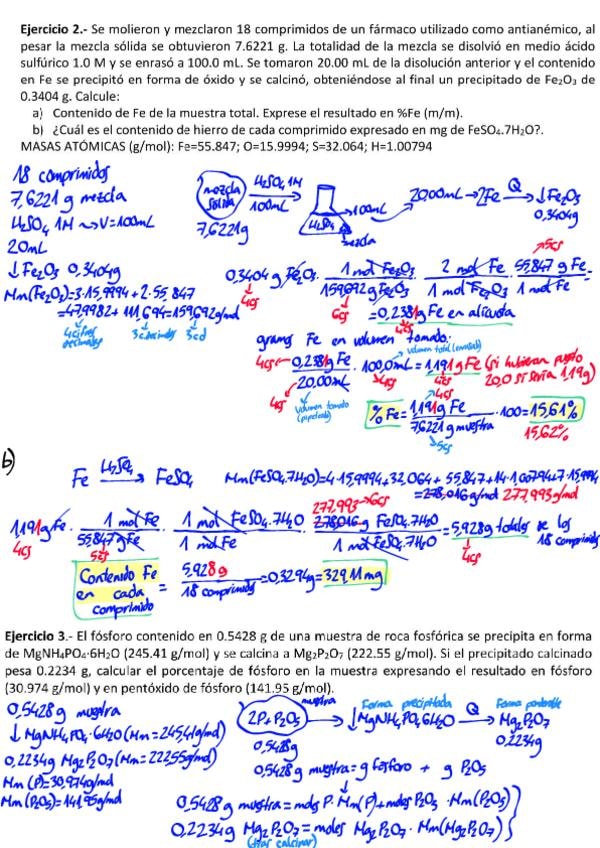 Ejercicio 2.- Se molieron y mezclaron 18 comprimidos de un fármaco utilizado como antianémico, al
pesar la mezcla sólida se obtuvieron 7.6221 g. La totalidad de la mezcla se disolvió en medio ácido
sulfúrico 1.0 M y se enrasó a 100.0 mL. Se tomaron 20.00 mL de la disolución anterior y el contenido
en Fe se precipitó en forma de óxido y se calcinó, obteniéndose al final un precipitado de Fe₂O₃ de
0.3404 g. Calcule:
a) Contenido de Fe de la muestra total. Exprese el resultado en %Fe (m/m).
b) ¿Cuál es el contenido de hierro de cada comprimido expresado en mg de FeSO₄.7H₂O?.
MASAS ATÓMICAS (g/mol): Fe=55.847; O=15.9994; S=32.064; H=1.00794
18 comprimidos
7,6221 g mezcla
H₂SO₄ 1M ⇝ V=100mL
20mL
↓ Fe₂O₃ 0,3404g
mezcla sólida
7,6221g
H₂SO₄ 1M
100mL
H₂SO₄
100mL
mezcla
20,00mL → 2Fe Q → ↓ Fe₂O₃
0,3404g
Mm(Fe₂O₃)=3·15,9994+2·55,847
=47,9982+111,694=159,692g/mol
4 cifras decimales 3 decimales 3cd
0,3404 g Fe₂O₃ · 1 mol Fe₂O₃ / 159,692 g Fe₂O₃ · 2 mol Fe / 1 mol Fe₂O₃ · 55,847 g Fe / 1 mol Fe
4cs 6cs 5cs
=0,2381g Fe en alícuota
4cs
gramos Fe en volumen tomado:
volumen total (enrasado)
0,2381g Fe / 20,00mL · 100,0mL = 1,191 g Fe (si hubieran puesto
20,0 sí sería 1,19g)
4cs 4cs 4cs 4cs
volumen tomado (pipeteado)
% Fe = 1,191g Fe / 7,6221 g muestra · 100 = 15,61%
4cs 5cs 15,62%
b)
Fe H₂SO₄ → FeSO₄
Mm(FeSO₄.7H₂O)=4·15,9994+32,064+55,847+14·1,00794+7·15,9994
=278,016g/mol 277,993g/mol
277,993→6cs
1,191gFe · 1 mol Fe / 55,847gFe · 1 mol FeSO₄.7H₂O / 1 mol Fe · 278,016 g FeSO₄.7H₂O / 1 mol FeSO₄.7H₂O = 5,928g totales de los
18 comprimidos
4cs 5cs 4cs
Contenido Fe en cada comprimido = 5,928g / 18 comprimidos = 0,3294g = 329,11mg
Ejercicio 3.- El fósforo contenido en 0.5428 g de una muestra de roca fosfórica se precipita en forma
de MgNH₄PO₄·6H₂O (245.41 g/mol) y se calcina a Mg₂P₂O₇ (222.55 g/mol). Si el precipitado calcinado
pesa 0.2234 g, calcular el porcentaje de fósforo en la muestra expresando el resultado en fósforo
(30.974 g/mol) y en pentóxido de fósforo (141.95 g/mol).
0,5428 g muestra
↓ MgNH₄PO₄·6H₂O (Mm=245,41g/mol)
0,2234g Mg₂P₂O₇ (Mm=222,55g/mol)
Mm (P)=30,974g/mol
Mm (P₂O₅)=141,95g/mol
muestra Forma precipitada Forma ponderable
2P+P₂O₅ → ↓MgNH₄PO₄·6H₂O Q → Mg₂P₂O₇
0,5428g 0,2234g
0,5428g muestra = g fósforo + g P₂O₅
0,5428 g muestra = mols P·Mm(P)+moles P₂O₅ · Mm(P₂O₅)
0,2234g Mg₂P₂O₇ = moles Mg₂P₂O₇ · Mm(Mg₂P₂O₇)
(tras calcinar)